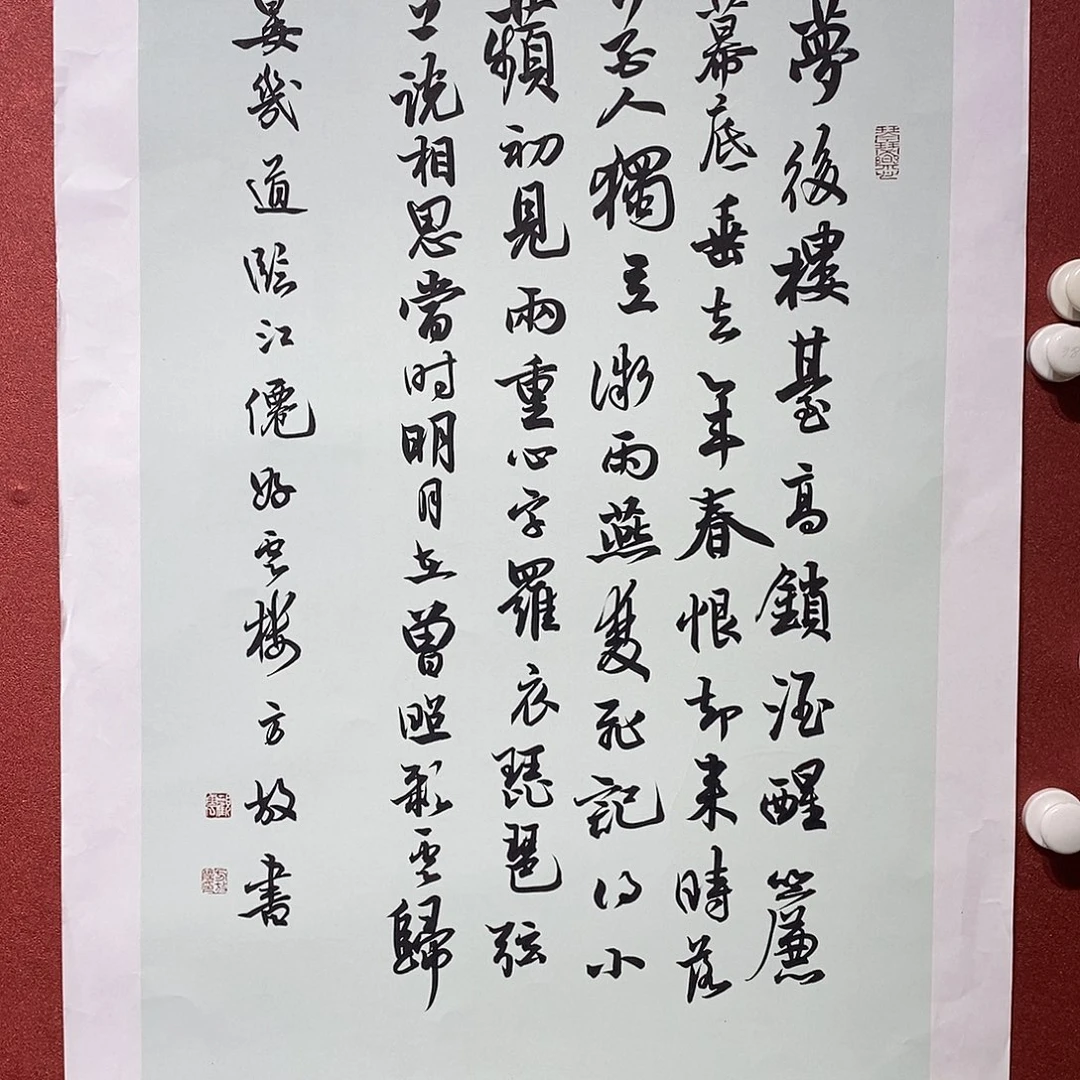 夢後樓臺高鎖酒醒簾
幕底垂去年春恨却来時落
花人獨立微雨燕雙飛記得小
蘋初見兩重心字羅衣琵琶弦
上说相思當时明月在曾照彩雲歸
晏幾道臨江僊好雲楼方放書